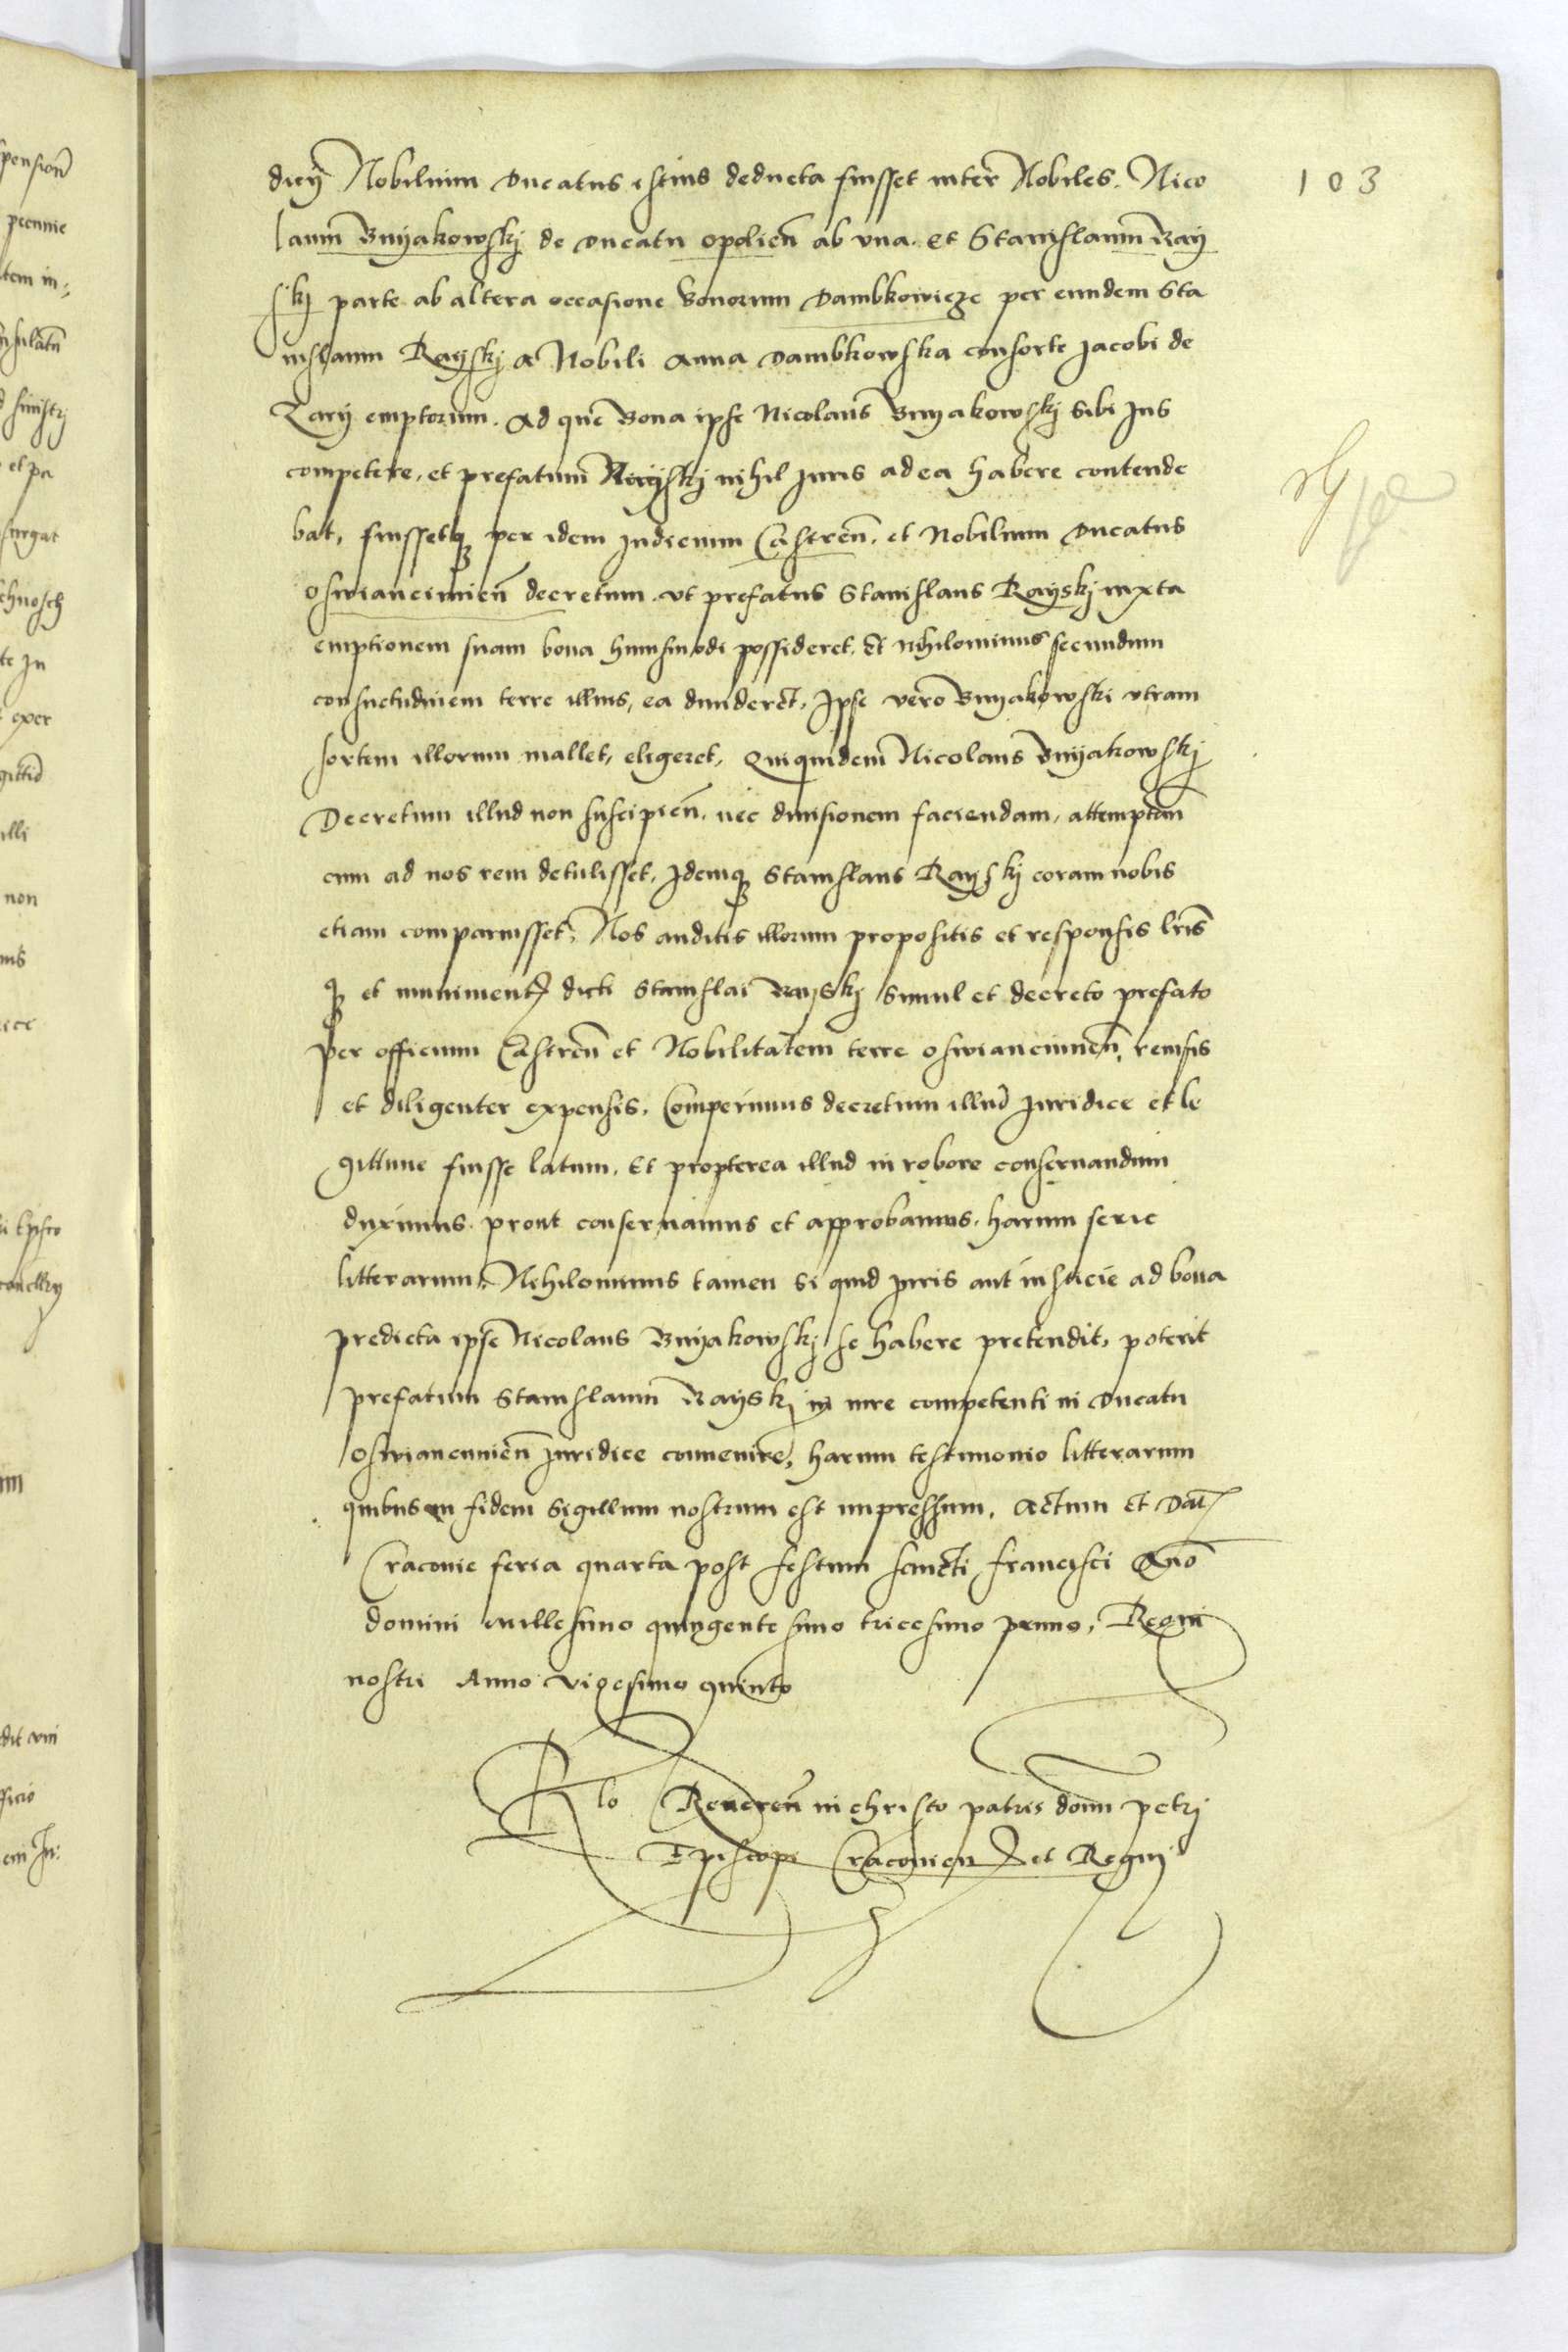 dicij Nobilium Ducatus istius deducta fuisset inter Nobiles. Nico
laum Bnyakowskj de Ducatu Opolien̄ ab vna. et Stanislaum Ray
skj parte ab altera occasione bonorum Dambkowicze per eundem Sta
nislaum Rayskj a Nobili Anna Dambkowska consorte Jacobi de
Zary emptorum. Ad que bona ipse Nicolaus Bnyakowskj sibi Jus
competere, et prefatum Rayskj nihil Juris ad ea habere contende
bat, fuissetq; per idem Judicium Castren̄. et Nobilium Ducatus
Oswiancimien̄ decretum vt prefatus Stanislaus Rayskj iuxta
emptionem suam bona huiusmodi possideret, et nihilominus secundum
consuetudinem terre illius, ea diuideret, Ipse vero Bnyakowski vtram
sortem illorum mallet, eligeret, Quiquidem Nicolaus Bnyakowskj
Decretum illud non suscipien̄. nec diuisionem faciendam, attemptan̄
cum ad nos rem detulisset, Idemq; Stanislaus Rayskj coram nobis
etiam comparuisset, Nos auditis illorum propositis et responsis lr̄is
q; et muniment dicti Stanislai Rayskj simul et decreto prefato
per officium Castren̄ et Nobilitatem terre Oswiancimien̄, reuisis
et diligenter expensis, Comperimus decretum illud Juridice et le
gittime fuisse latum, Et propterea illud in robore conseruandum
duximus. prout conseruamus et approbamus, harum serie
litterarum, Nihilominus tamen si quid Juris aut iusticie ad bona
predicta ipse Nicolaus Bnyakowskj se habere pretendit, poterit
prefatum Stanislaum Rayskj in iure competenti in Ducatu
Oswiancimien̄ Juridice conuenire, harum testimonio litterarum
quibus in fidem Sigillum nostrum est impressum, Actum et Dat
Cracouie feria quarta post festum sancti Francisci An̄o
domini Millesimo quingentesimo tricesimo primo, Regni
nostri Anno vigesimo quinto
Rlo Reueren̄ in christo patris domi Petrj
Episcopi Cracouien et Regnj
103